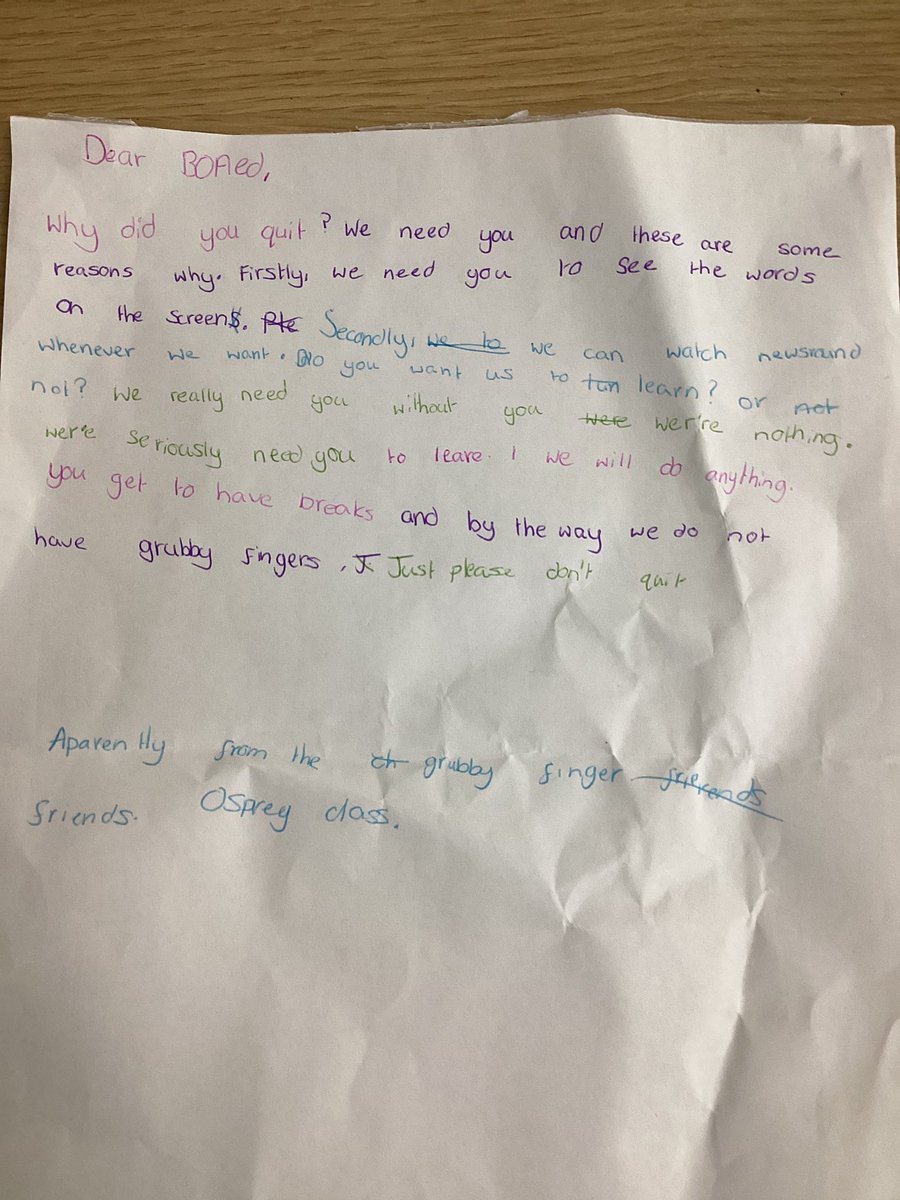 Dear BOARed,
Why did you quit? We need you and these are some
reasons why. Firstly, we need you to see the words
on the screens. Secondly, we to we can watch newsround
whenever we want. Do you want us to learn? or not
not? We really need you without you were wer're nothing.
wer'e seriously need you to leave. I we will do anything.
You get to have breaks and by the way we do not
have grubby fingers. J Just please don't quit
Aparently from the ch grubby finger frierends
friends. Osprey class.